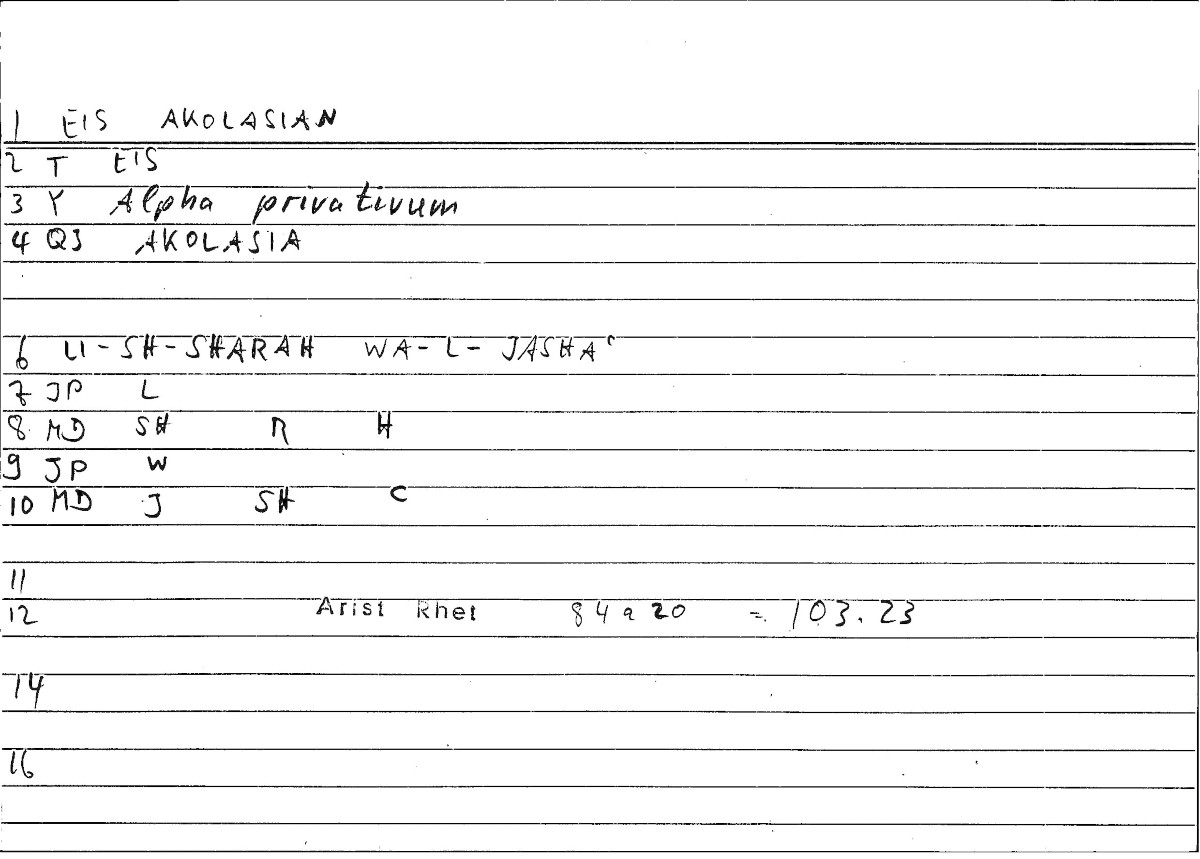 1 EIS AKOLASIAN
2 T EIS
3 Y Alpha privativum
4 QJ AKOLASIA
6 LI-SH-SHARAH WA-L-JASHAʿ
7 JP L
8 MD SH R H
9 JP W
10 MD J SH C
11
12 Arist Rhet 84a20 = 103.23
14
16